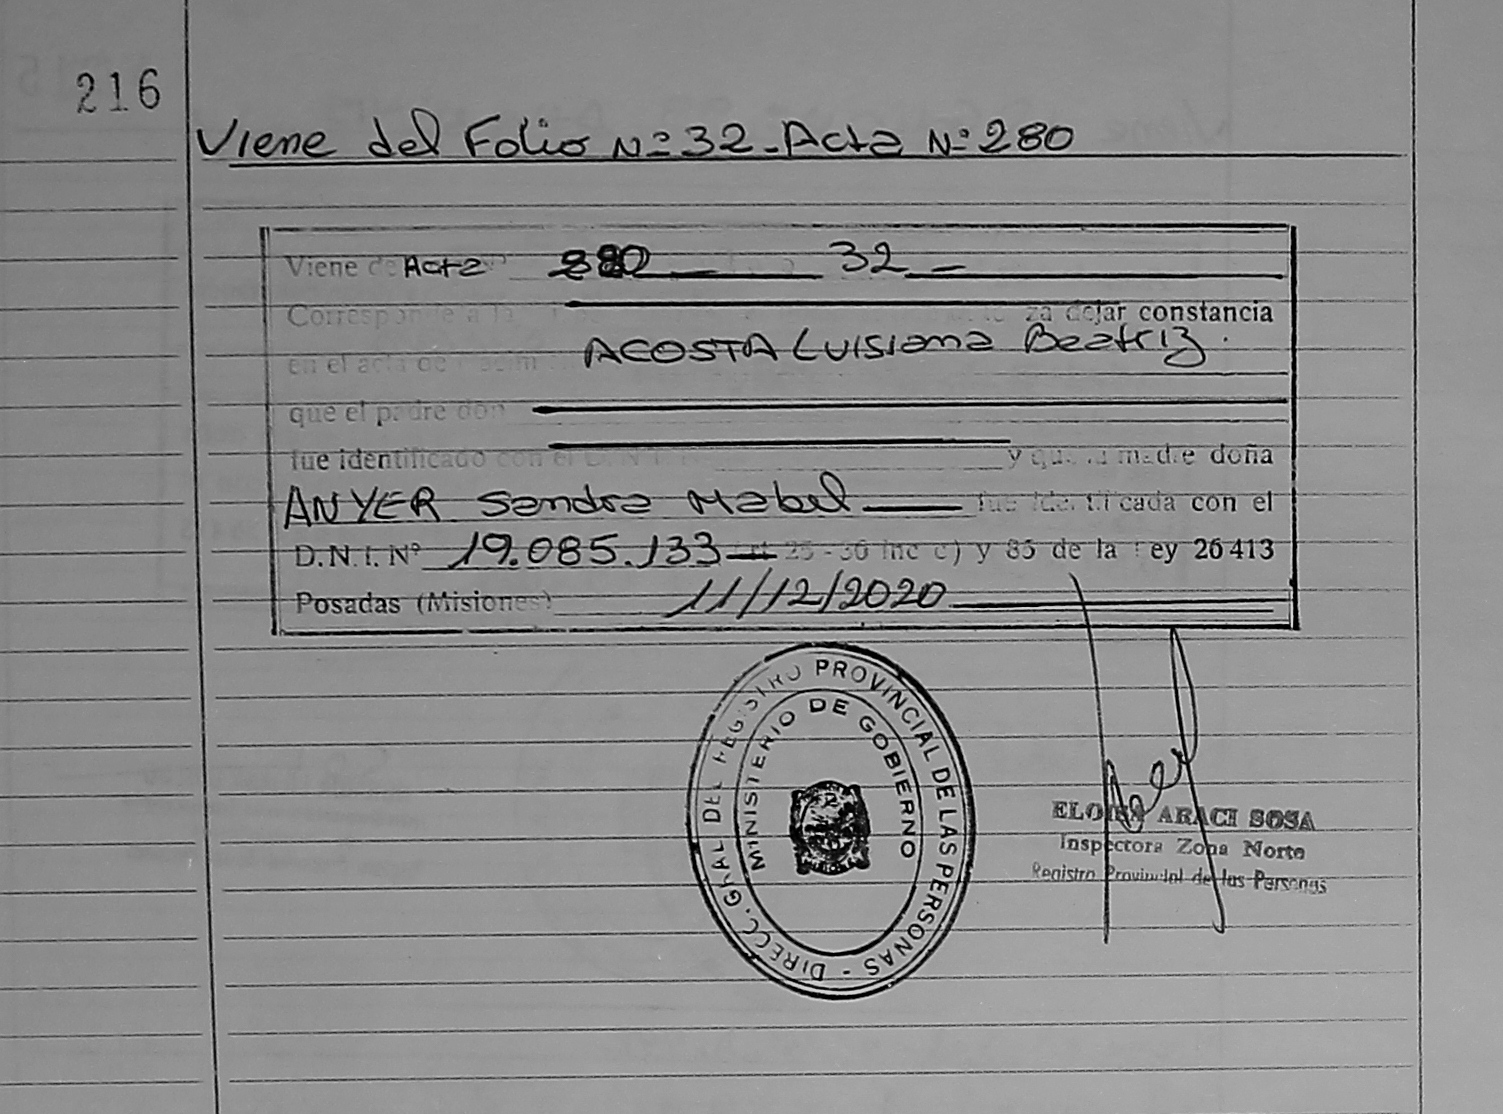 216
Viene del Folio Nº 32 - Acta Nº 280
Viene de Acta 280 — 32 —
Corresponde a la za dejar constancia
ACOSTA Luisiana Beatriz.
en el acta de
que el padre don
fue identificado con el D.N.I. y que la madre doña
ANYER Sandra Mabel — fue identificada con el
D.N.I. Nº 19.085.133 — 25 - 36 inc c) y 85 de la Ley 26413
Posadas (Misiones) 11/12/2020
DIRECC. GRAL DEL REGISTRO PROVINCIAL DE LAS PERSONAS -
MINISTERIO DE GOBIERNO
ARACI SOSA
Inspectora Zona Norte
Registro Provincial de las Personas